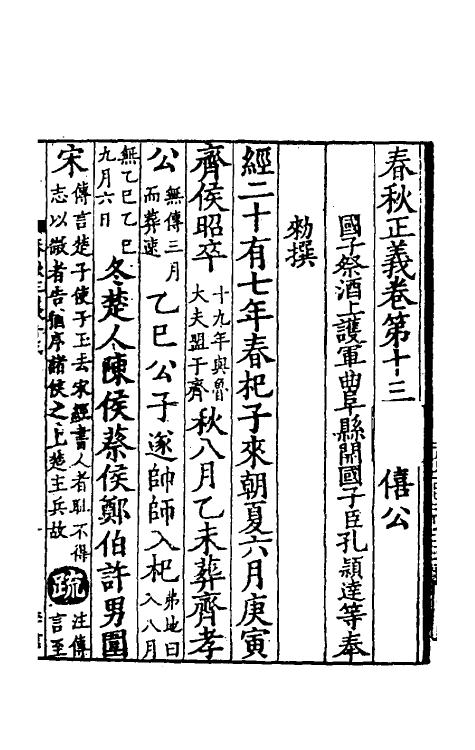 春秋正義卷第十三　僖公
國子祭酒上護軍曲阜縣開國子臣孔穎達等奉
勑撰
經二十有七年春杞子來朝夏六月庚寅
齊侯昭卒十九年與魯大夫盟于齊秋八月乙未葬齊孝
公無傳三月而葬速乙巳公子遂帥師入杞弗地曰入八月
無乙巳乙巳九月六日冬楚人陳侯蔡侯鄭伯許男圍
宋傳言楚子使子玉去宋經書人者恥不得志以微者告猶序諸侯之上楚主兵故疏注傳言至